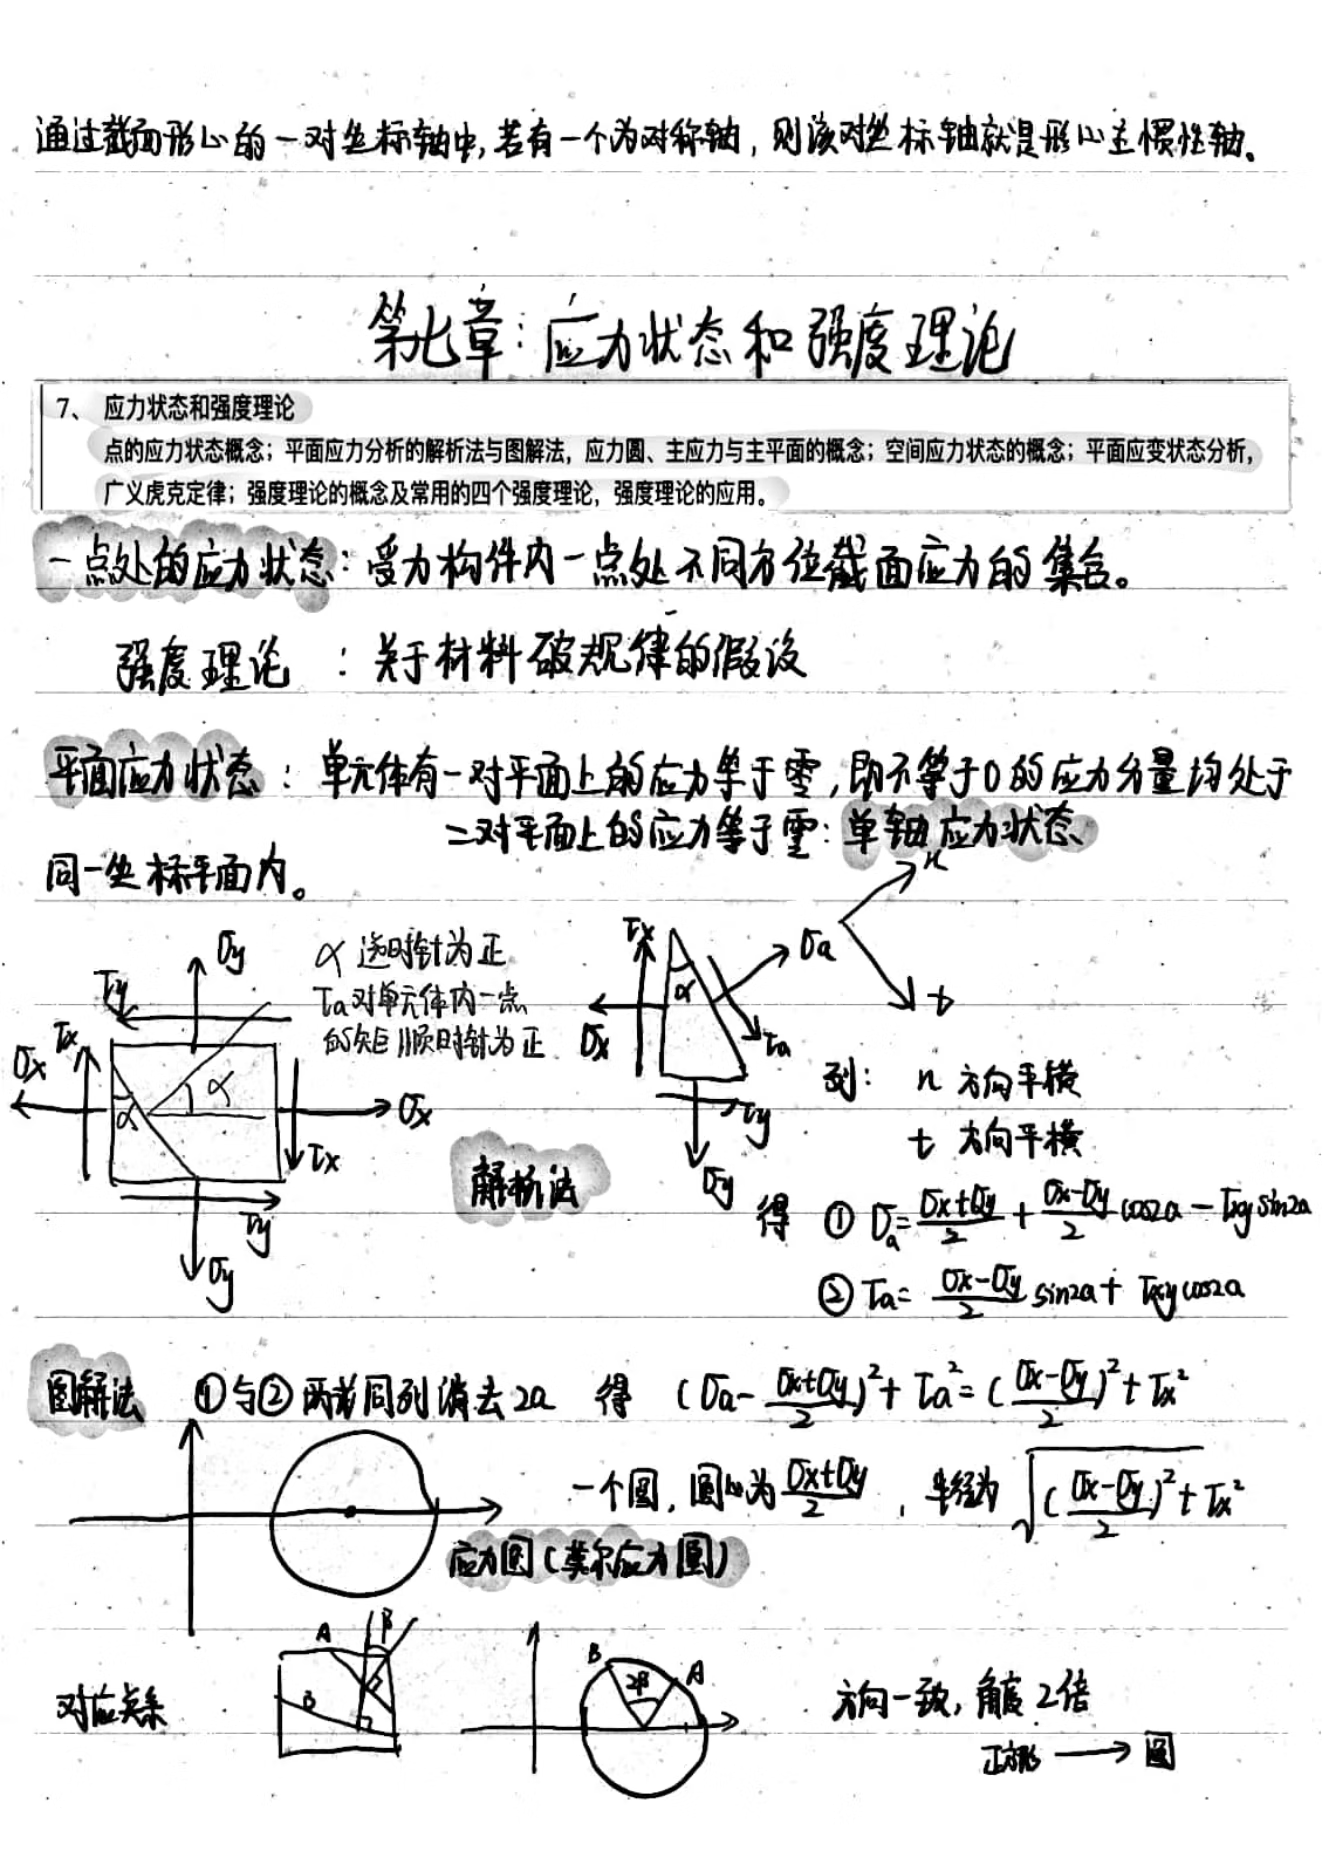 通过截面形心的一对坐标轴中,若有一个为对称轴,则该对坐标轴就是形心主惯性轴。
第七章:应力状态和强度理论
7、 应力状态和强度理论
点的应力状态概念;平面应力分析的解析法与图解法,应力圆、主应力与主平面的概念;空间应力状态的概念;平面应变状态分析,
广义虎克定律;强度理论的概念及常用的四个强度理论,强度理论的应用。
一点处的应力状态:受力构件内一点处不同方位截面应力的集合。
强度理论 :关于材料破规律的假设
平面应力状态:单元体有一对平面上的应力等于零,即不等于0的应力分量均处于
二对平面上的应力等于零:单轴应力状态
同一坐标平面内。
σy α 逆时针为正 τx α σa n t
τy τa对单元体内一点
σx τx 的矩顺时针为正 σx τa
α α σx 列: n 方向平横
τx τy t 方向平横
解析法
τy σy σy 得 ① σa= (σx+σy)/2 + (σx-σy)/2 cos2a - τxy sin2a
② τa= (σx-σy)/2 sin2a + τxy cos2a
图解法 ①与②两式同列消去2a 得 (σa- (σx+σy)/2)²+ τa²= ((σx-σy)/2)²+ τx²
一个圆,圆心为 (σx+σy)/2 , 半径为 √(((σx-σy)/2)²+ τx²)
应力圆(莫尔应力圆)
对应关系 A β B B 2β A 方向一致,角度2倍
正方形 → 圆